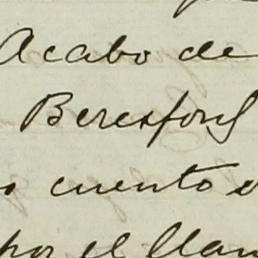 Acabo de
Beresford
o cuento
por el llan